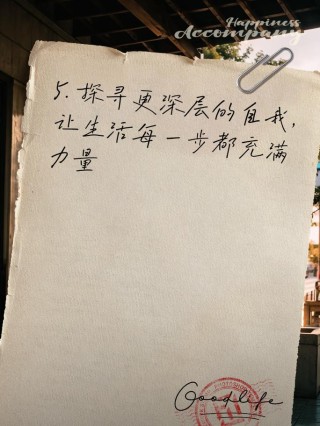 Happiness
Accompany
5.探寻更深层的自我,
让生活每一步都充满
力量
Goodlife